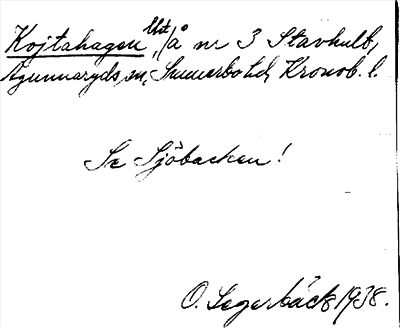 Kojtahagen, lht, på nr 3 Stavhult,
Agunnaryds sn, Sunnerbo hd, Kronob. l.
Se Sjöbacken!
O. Segerbäck 1938.